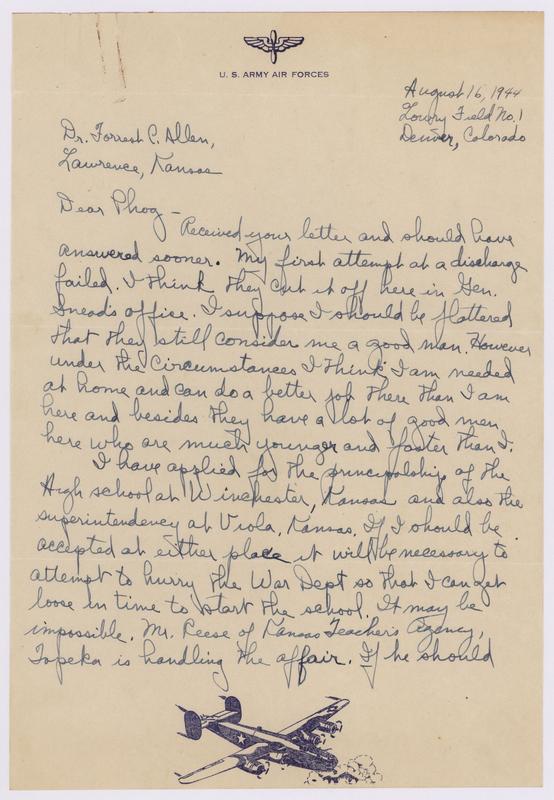 U. S. ARMY AIR FORCES
August 16, 1944
Lowry Field No. 1
Denver, Colorado
Dr. Forrest C. Allen,
Lawrence, Kansas
Dear Phog -
Received your letter and should have
answered sooner. My first attempt at a discharge
failed. I think they cut it off here in Gen.
Sneads office. I suppose I should be flattered
that they still consider me a good man. However
under the circumstances I think I am needed
at home and can do a better job there than I am
here and besides they have a lot of good men
here who are much younger and faster than I.
I have applied for the principalship of the
High school at Winchester, Kansas and also the
superintendency at Viola, Kansas. If I should be
accepted at either place it will be necessary to
attempt to hurry the War Dept so that I can get
loose in time to start the school. It may be
impossible. Mr. Reese of Kansas Teacher's Agency,
Topeka is handling the affair. If he should